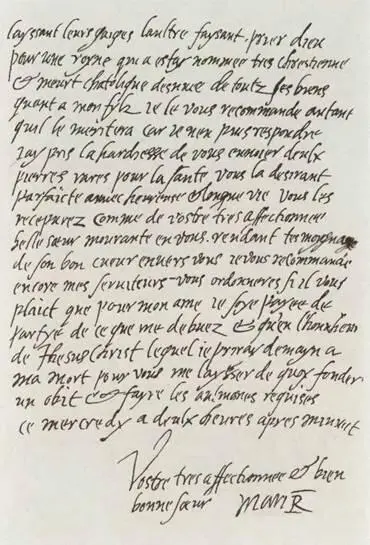 layssant leurs gaiges laultre faysant prier dieu
pour une royne qui a estay nommee tres chrestienne
& meurt chatolique desnuee de toutz ses biens
quant a mon fylz ie le vous recommande autant
quil le meritera car ie nen puis respondre
Iay pris la hardiesse de vous enuoier deulx
pierres rares pour la sante vous la desirant
parfaicte auuec heureuse & longue vie vous les
recepvrez comme de vostre tres affectionnee
belle sœur mourante en vous rendant tesmoygnage
de son bon cueur enuers vous ie vous recommande
encore mes seruiteurs vous ordonneres si il vous
plaict que pour mon ame ie soye payee de
partye de ce que me debuez & quen lhonnheur
de Ihesus Christ lequel ie priray demayn a
ma mort pour vous me laysser de quoy fonder
un obit & fayre les aumones requises
ce mercredy a deulx heures apres minuit
Vostre tres affectionnee & bien
bonne sœur MARI R